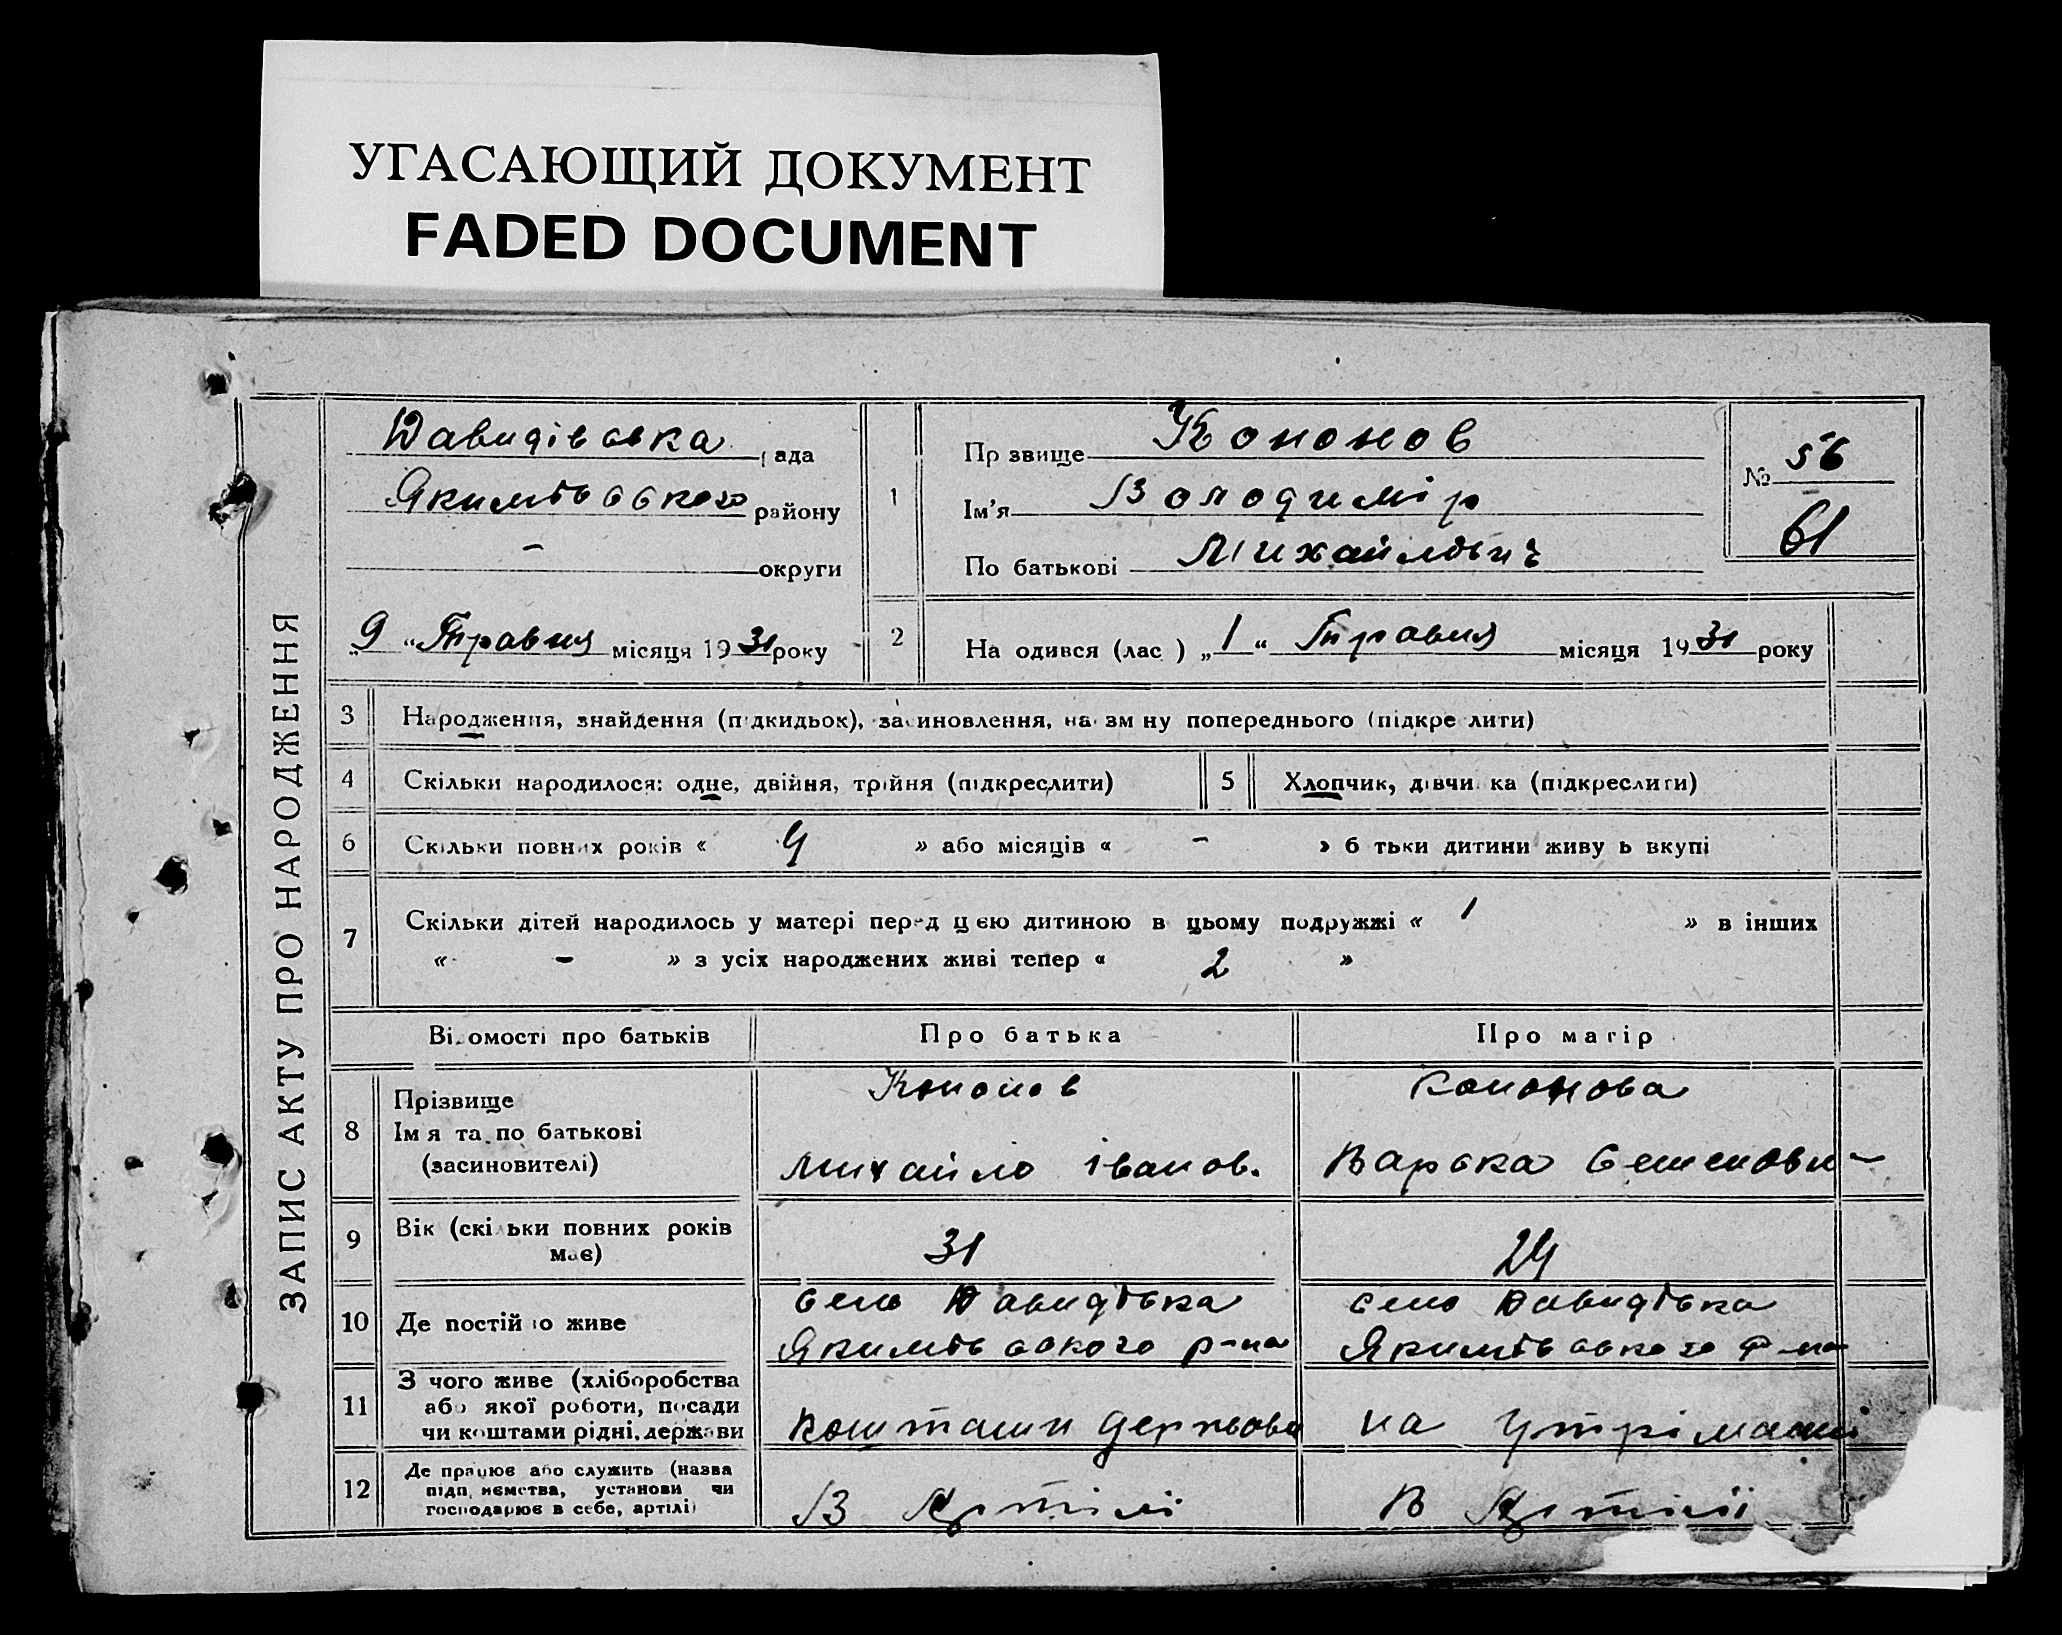 УГАСАЮЩИЙ ДОКУМЕНТ
FADED DOCUMENT
ЗАПИС АКТУ ПРО НАРОДЖЕННЯ
Давидівська рада
Якимівського району
– округи
„9“ Травня місяця 1931 року
1
Прзвище Кононов
Ім'я Володимір
По батькові Михайлович
№ 56
61
2
На одився (лас ) „1“ Травня місяця 1931 року
3 Народження, знайдення (пдкидьок), засиновлення, на змну попереднього (підкре лити)
4 Скільки народилося: одне, двійня, трійня (підкреслити)
5 Хлопчик, дівчи ка (підкреслити)
6 Скільки повних років « 4 » або місяців « – » б тьки дитини живу ь вкупі
7 Скільки дітей народилось у матері перед цією дитиною в цьому подружжі « 1 » в інших
« – » з усіх народжених живі тепер « 2 »
Відомості про батьків Про батька Про матір
8 Прізвище
Імя та по батькові
(засиновителі)
Кононов
Михайло Іванов.
Кононова
Варвка Семеновн
9 Вік (скі ьки повних років
має)
31
24
10 Де постій о живе
село Давидівка
Якимівського р-на
село Давидівка
Якимівського р-на
11 З чого живе (хліборобства
або якої роботи, посади
чи коштами рідні, держави
коштами держави
на утріманні
12 Де працює або служить (назва
підп иємства, установи чи
господарює в себе, артілі)
В Артілі
В Артілі